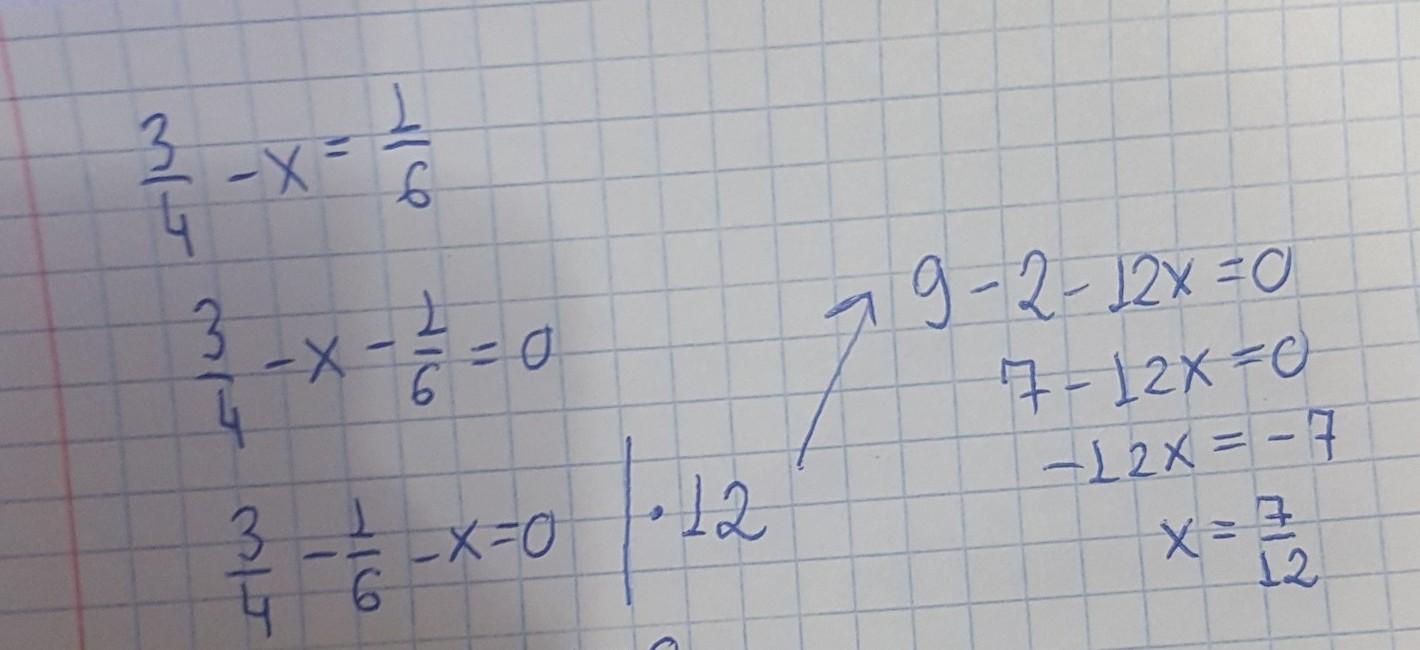 3/4 - x = 1/6
3/4 - x - 1/6 = 0
3/4 - 1/6 - x = 0 | · 12
9 - 2 - 12x = 0
7 - 12x = 0
-12x = -7
x = 7/12